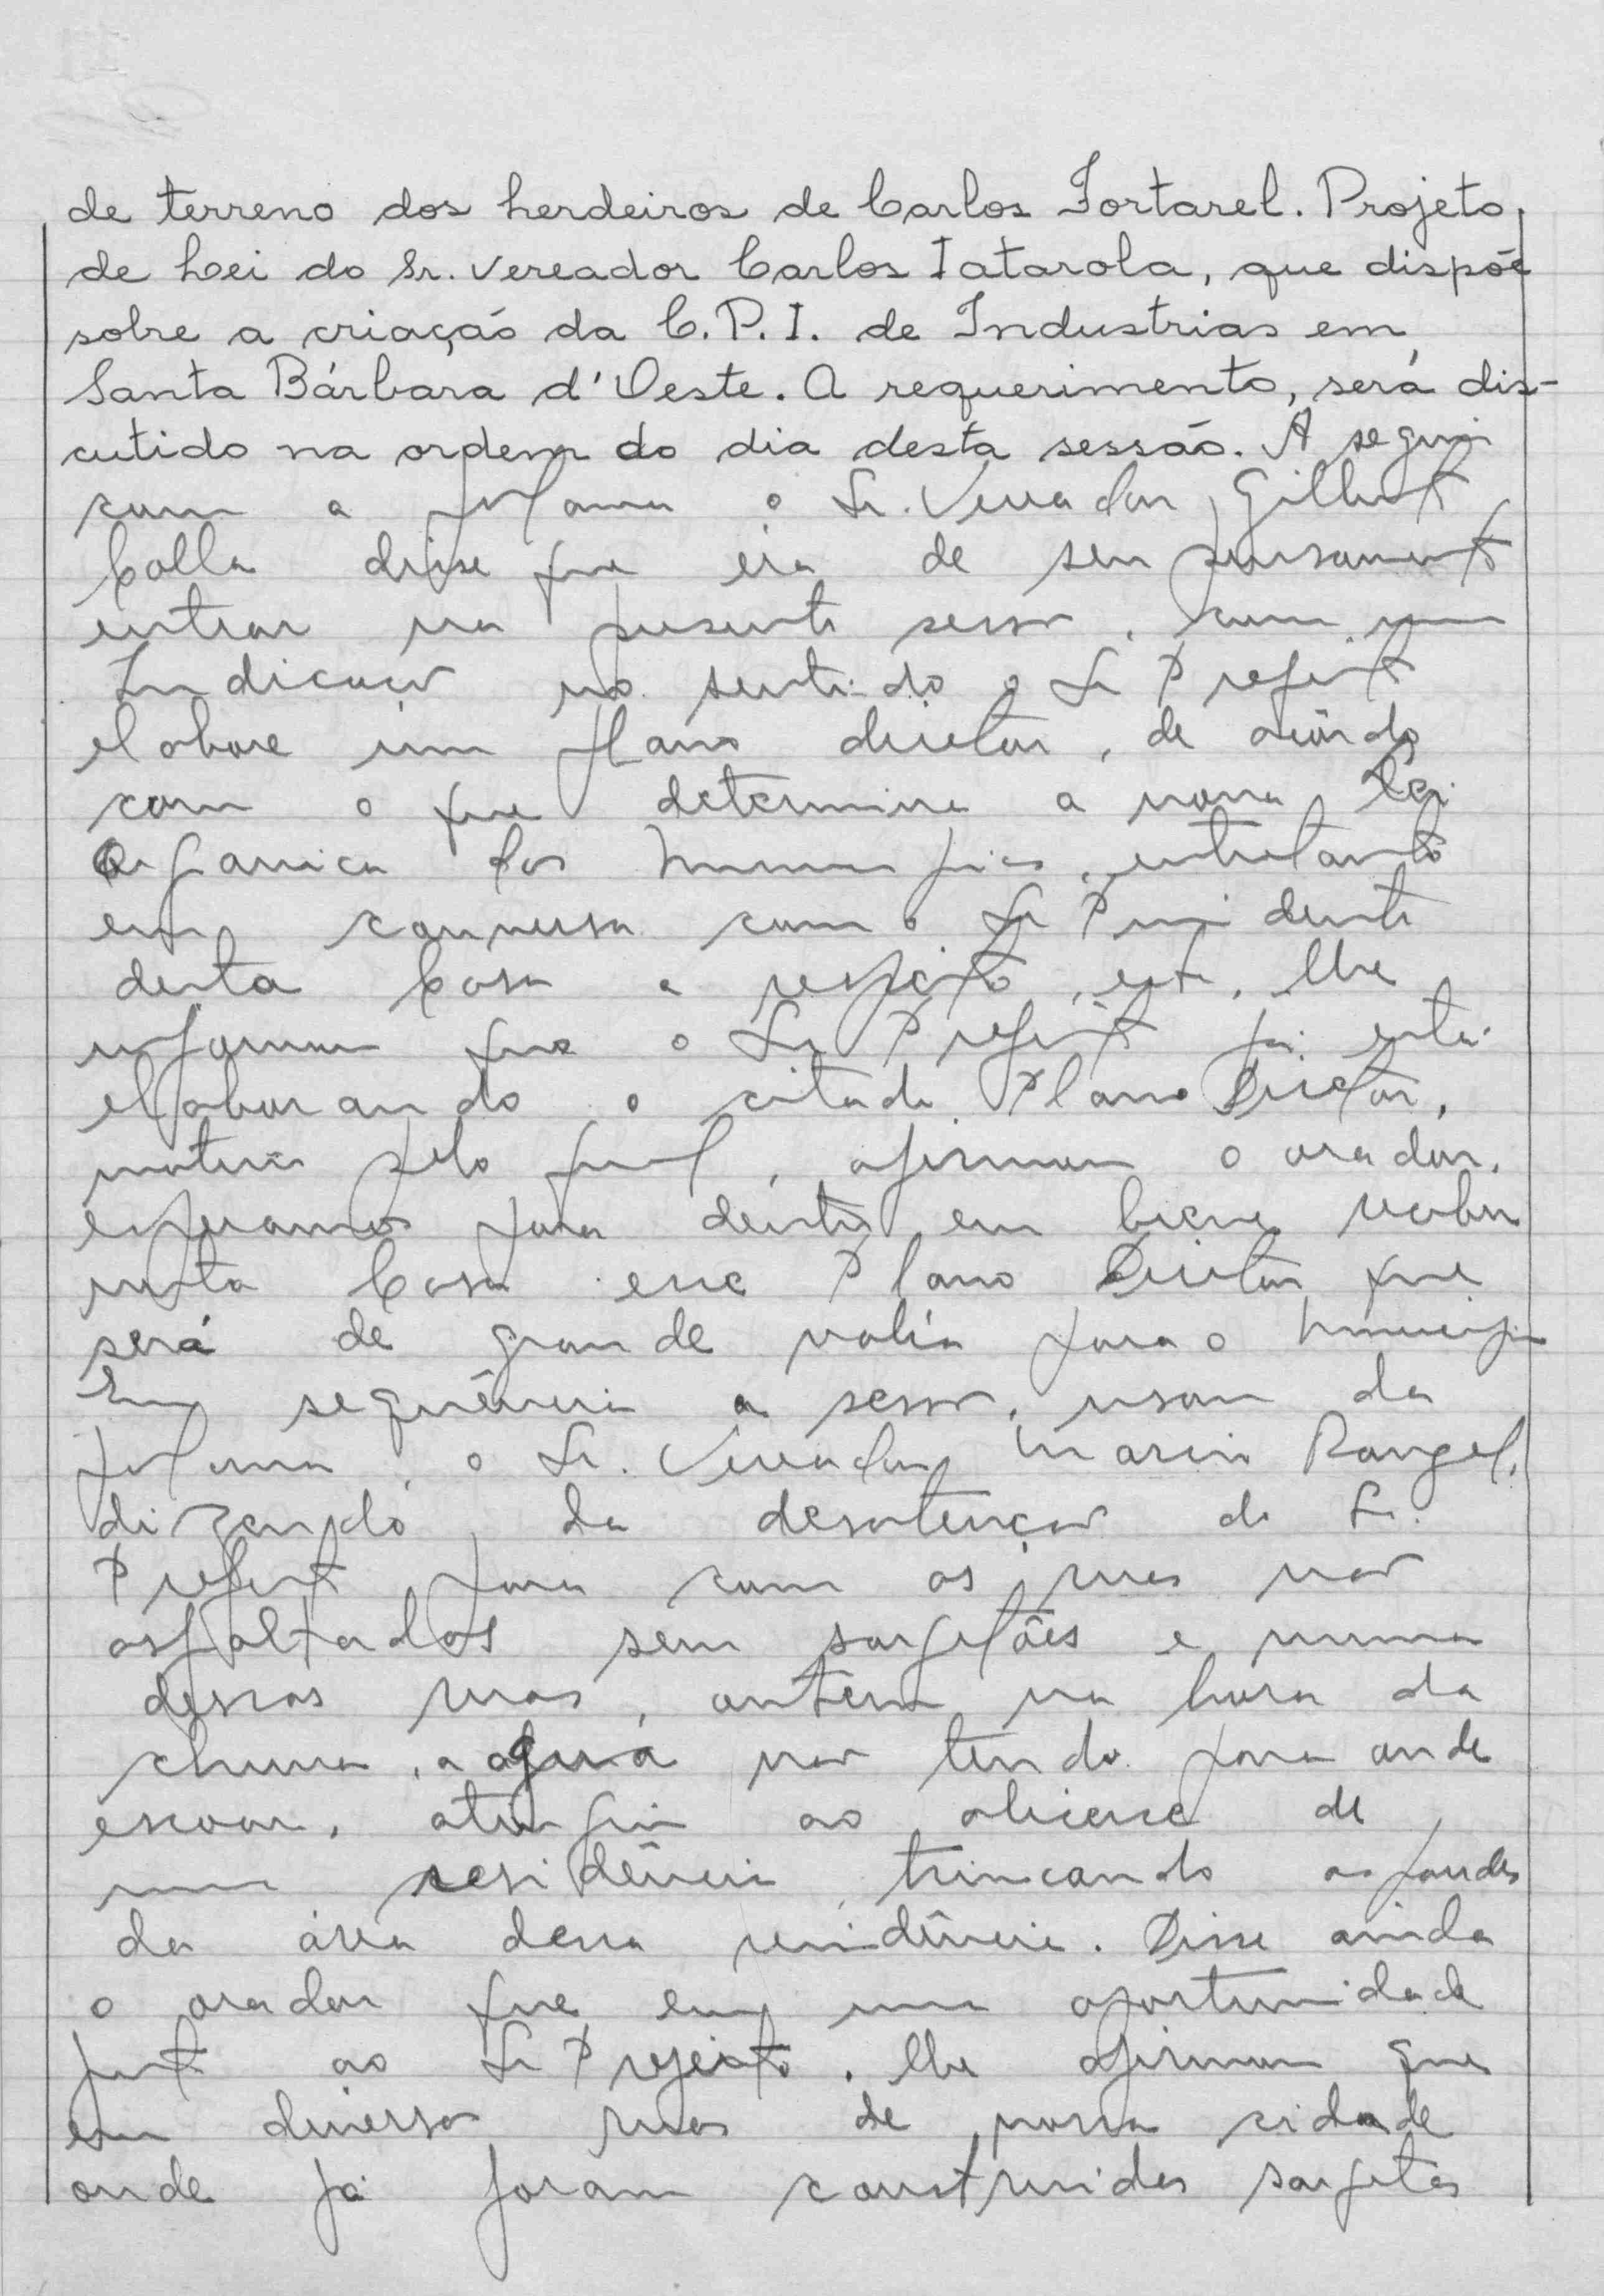 de terreno dos herdeiros de Carlos Fortarel. Projeto
de Lei do Sr. Vereador Carlos Tatarola, que dispõe
sobre a criação da C.P.I. de Industrias em
Santa Bárbara d'Oeste. O requerimento, será dis-
cutido na ordem do dia desta sessão. A seguir
com a palavra o Sr. Vereador Gilberto
Colla disse que éra de seu pensamento
entrar na presente sessão, com uma
Indicação no sentido o Sr Prefeito
elabore um plano diretor, de acôrdo
com o que determina a nova Lei
Organica dos Municipios, entretanto
em conversa com o Sr Presidente
desta Casa a respeito, este, lhe
informou que o Sr Prefeito já está
elaborando o citado Plano Diretor,
motivo pelo qual, afirmou o orador,
esperamos para dentro em breve receber
nesta Casa esse Plano Diretor que
será de grande valia para o Municipio
Em sequência a sessão, usou da
palavra, o Sr. Vereador Mario Rangel,
dizendo da desatenção do Sr.
Prefeito para com as ruas não
asfaltadas sem sargetões e numa
dessas ruas, ontem na hora da
chuva, a agua não tendo para onde
escoar, atingiu ao alicerce de
uma residência trincando as paredes
da área dessa residência. Disse ainda
o orador que em uma oportunidade
junto ao Sr Prefeito, lhe afirmou que
em diversas ruas de nossa cidade
onde já foram construidas sargetas